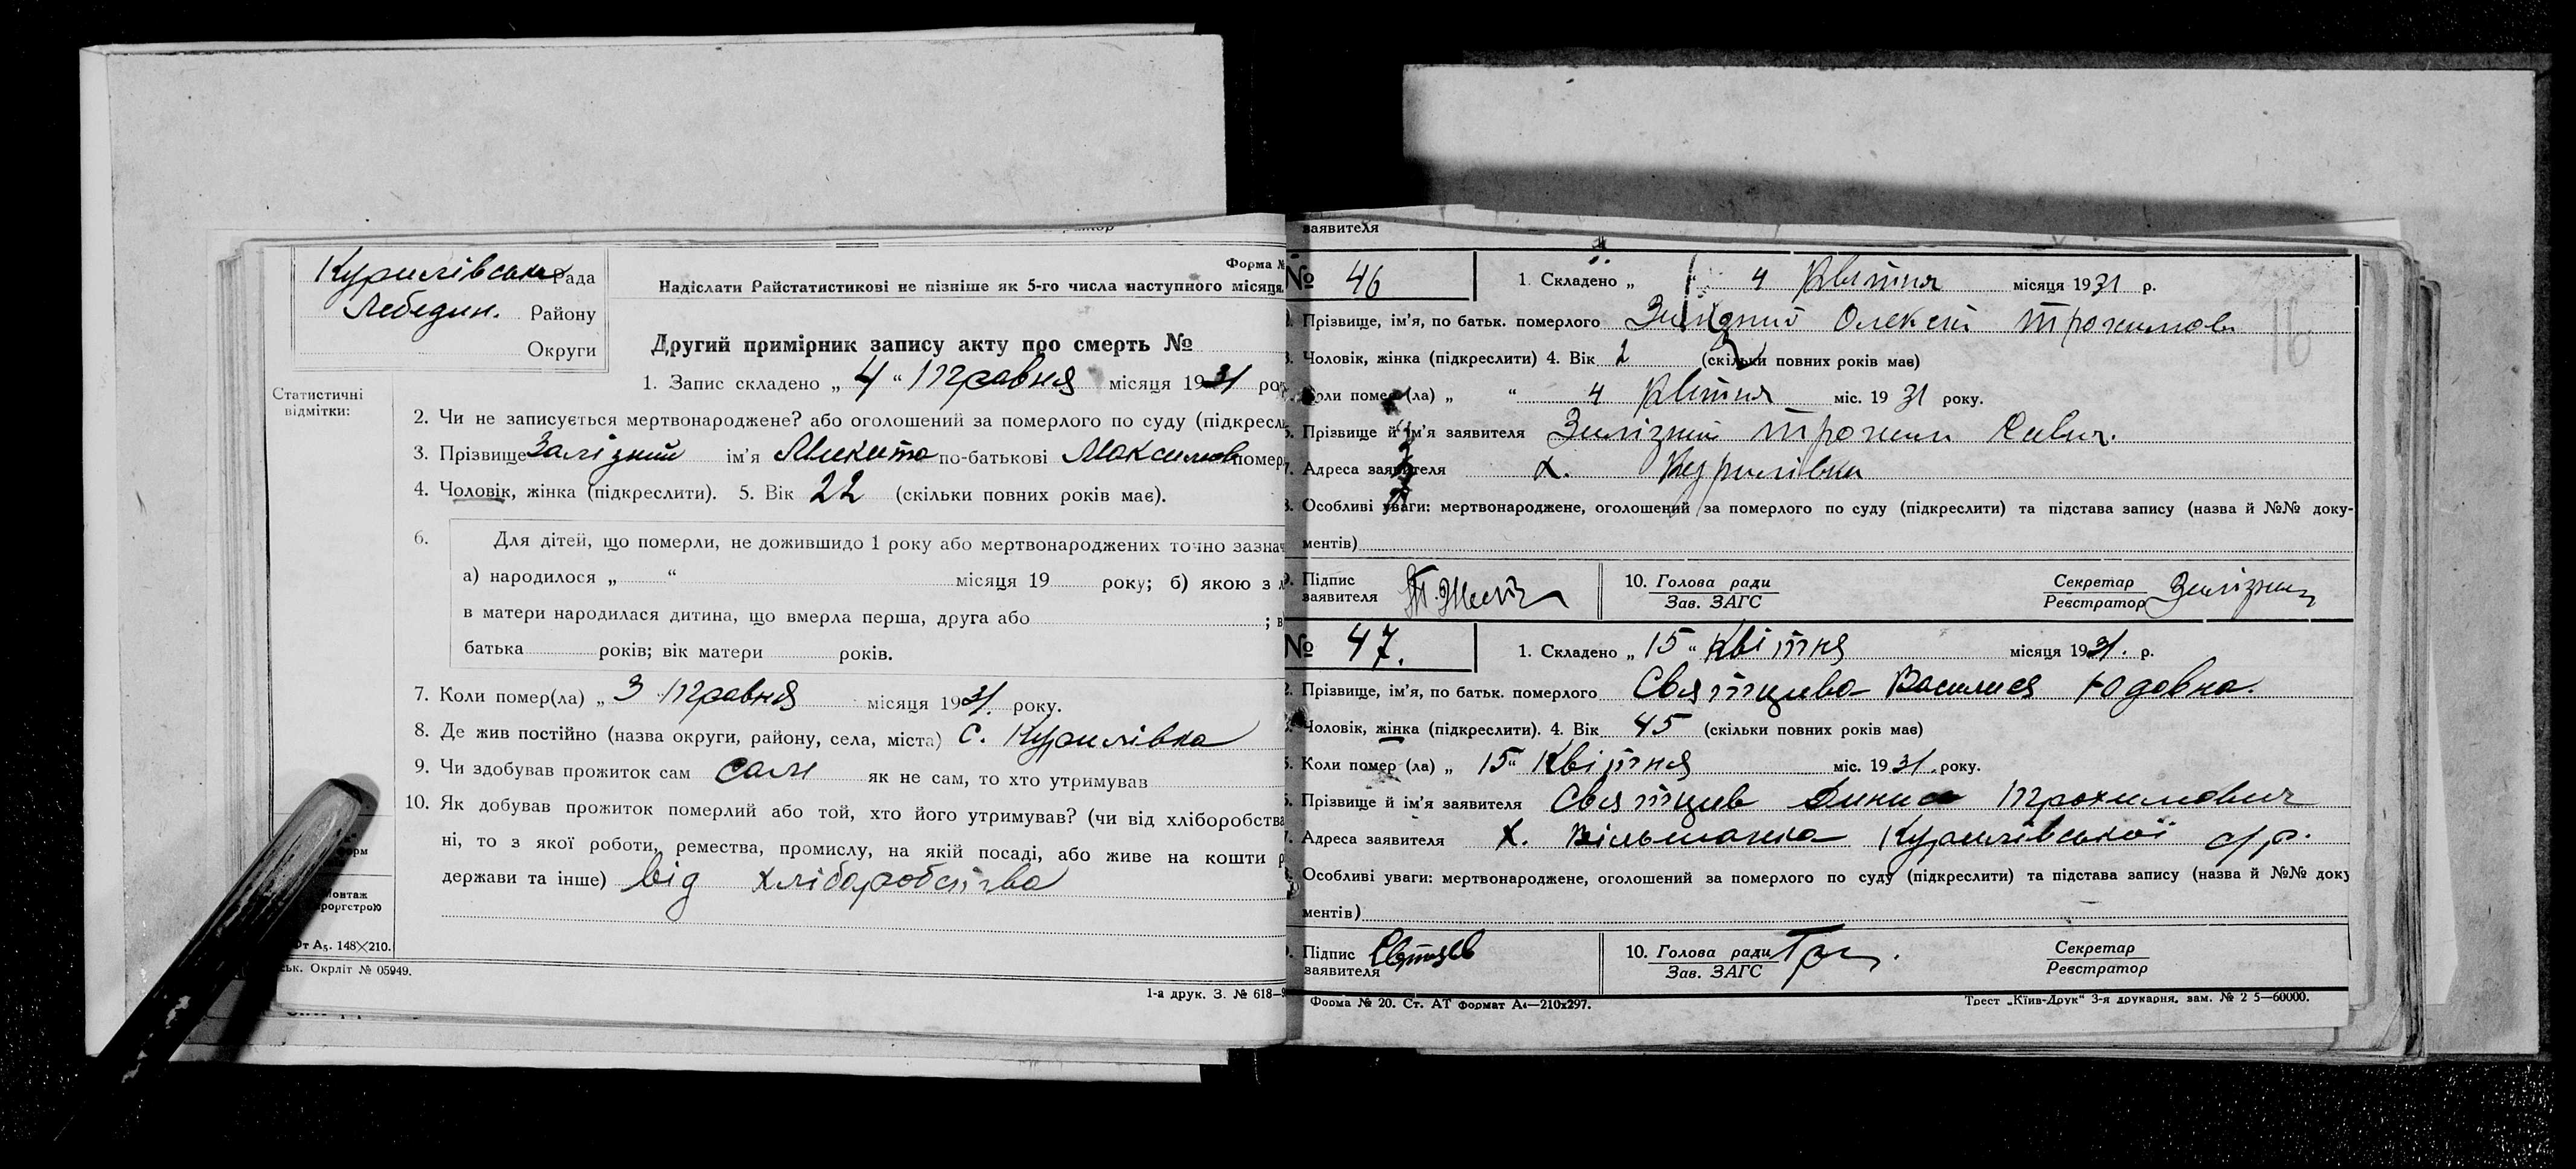 Курилівська Рада
Лебедин. Району
Округи
Форма №
Надіслати Райстатистикові не пізніше як 5-го числа наступного місяця
Другий примірник запису акту про смерть №
1. Запис складено „ 4 “ Травня місяця 1931
Статистичні
відмітки:
2. Чи не записується мертвонароджене? або оголошений за померлого по суду
3. Прізвище Залізний ім'я Микита по-батькові Максимов
4. Чоловік, жінка (підкреслити). 5. Вік 22 (скільки повних років має).
6. Для дітей, що померли, не дожившидо 1 року або мертвонароджених точно
а) народилося „ “ місяця 19 року; б) якою з
в матери народилася дитина, що вмерла перша, друга або ;
батька років; вік матери років.
7. Коли помер(ла) „ 3 “ Травня місяця 1931. року.
8. Де жив постійно (назва округи, району, села, міста) С. Курилівка
9. Чи здобував прожиток сам сам як не сам, то хто утримував
10. Як добував прожиток померлий або той, хто його утримував? (чи від хліборобства
ні, то з якої роботи, ремества, промислу, на якій посаді, або живе на кошти
держави та інше) від хліборобства
А5. 148×210.
Окрліт № 05949.
1-а друк. З. № 618
заявителя
№ 46 1. Складено „ 4 Квітня місяця 1931 р.
Прізвище, ім'я, по батьк. померлого Залізний Олексій Трохимов
Чоловік, жінка (підкреслити) 4. Вік 2 (скільки повних років має)
Коли помер (ла) „ “ 4 Квітня міс. 1931 року.
Прізвище й ім'я заявителя Залізний Трохим
Адреса заявителя х. Курилівка
Особливі уваги: мертвонароджене, оголошений за померлого по суду (підкреслити) та підстава запису (назва й №№ доку-
ментів)
Підпис
заявителя
10. Голова ради
Зав. ЗАГС
Секретар
Реєстратор
Залізний
№ 47. 1. Складено „ 15 “ Квітня місяця 1931. р.
Прізвище, ім'я, по батьк. померлого Святцева Василися Юдовна.
Чоловік, жінка (підкреслити). 4. Вік 45 (скільки повних років має)
Коли помер (ла) „ 15 “ Квітня міс. 1931. року.
Прізвище й ім'я заявителя Святцев Трохимович
Адреса заявителя х. Вільшанка Курилівської с/р.
Особливі уваги: мертвонароджене, оголошений за померлого по суду (підкреслити) та підстава запису (назва й №№ доку
ментів)
Підпис
заявителя
10. Голова ради
Зав. ЗАГС
Секретар
Реєстратор
Форма № 20. Ст. АТ формат А4—210х297.
Трест „Київ-Друк“ 3-я друкарня. зам. № 2 5—60000.